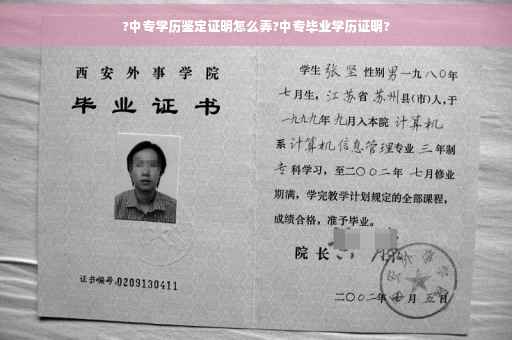 ?中专学历鉴定证明怎么弄?中专毕业学历证明?
西安外事学院
毕业证书
证书编号:0209130411
学生 张坚 性别男一九八〇年
七月生,江苏省苏州县(市)人,于
一九九九年九月入本院 计算机
系计算机信息管理专业 三 年制
专科学习,至二〇〇二年 七月修业
期满,学完教学计划规定的全部课程,
成绩合格,准予毕业。
院长
二〇〇二年 月五日